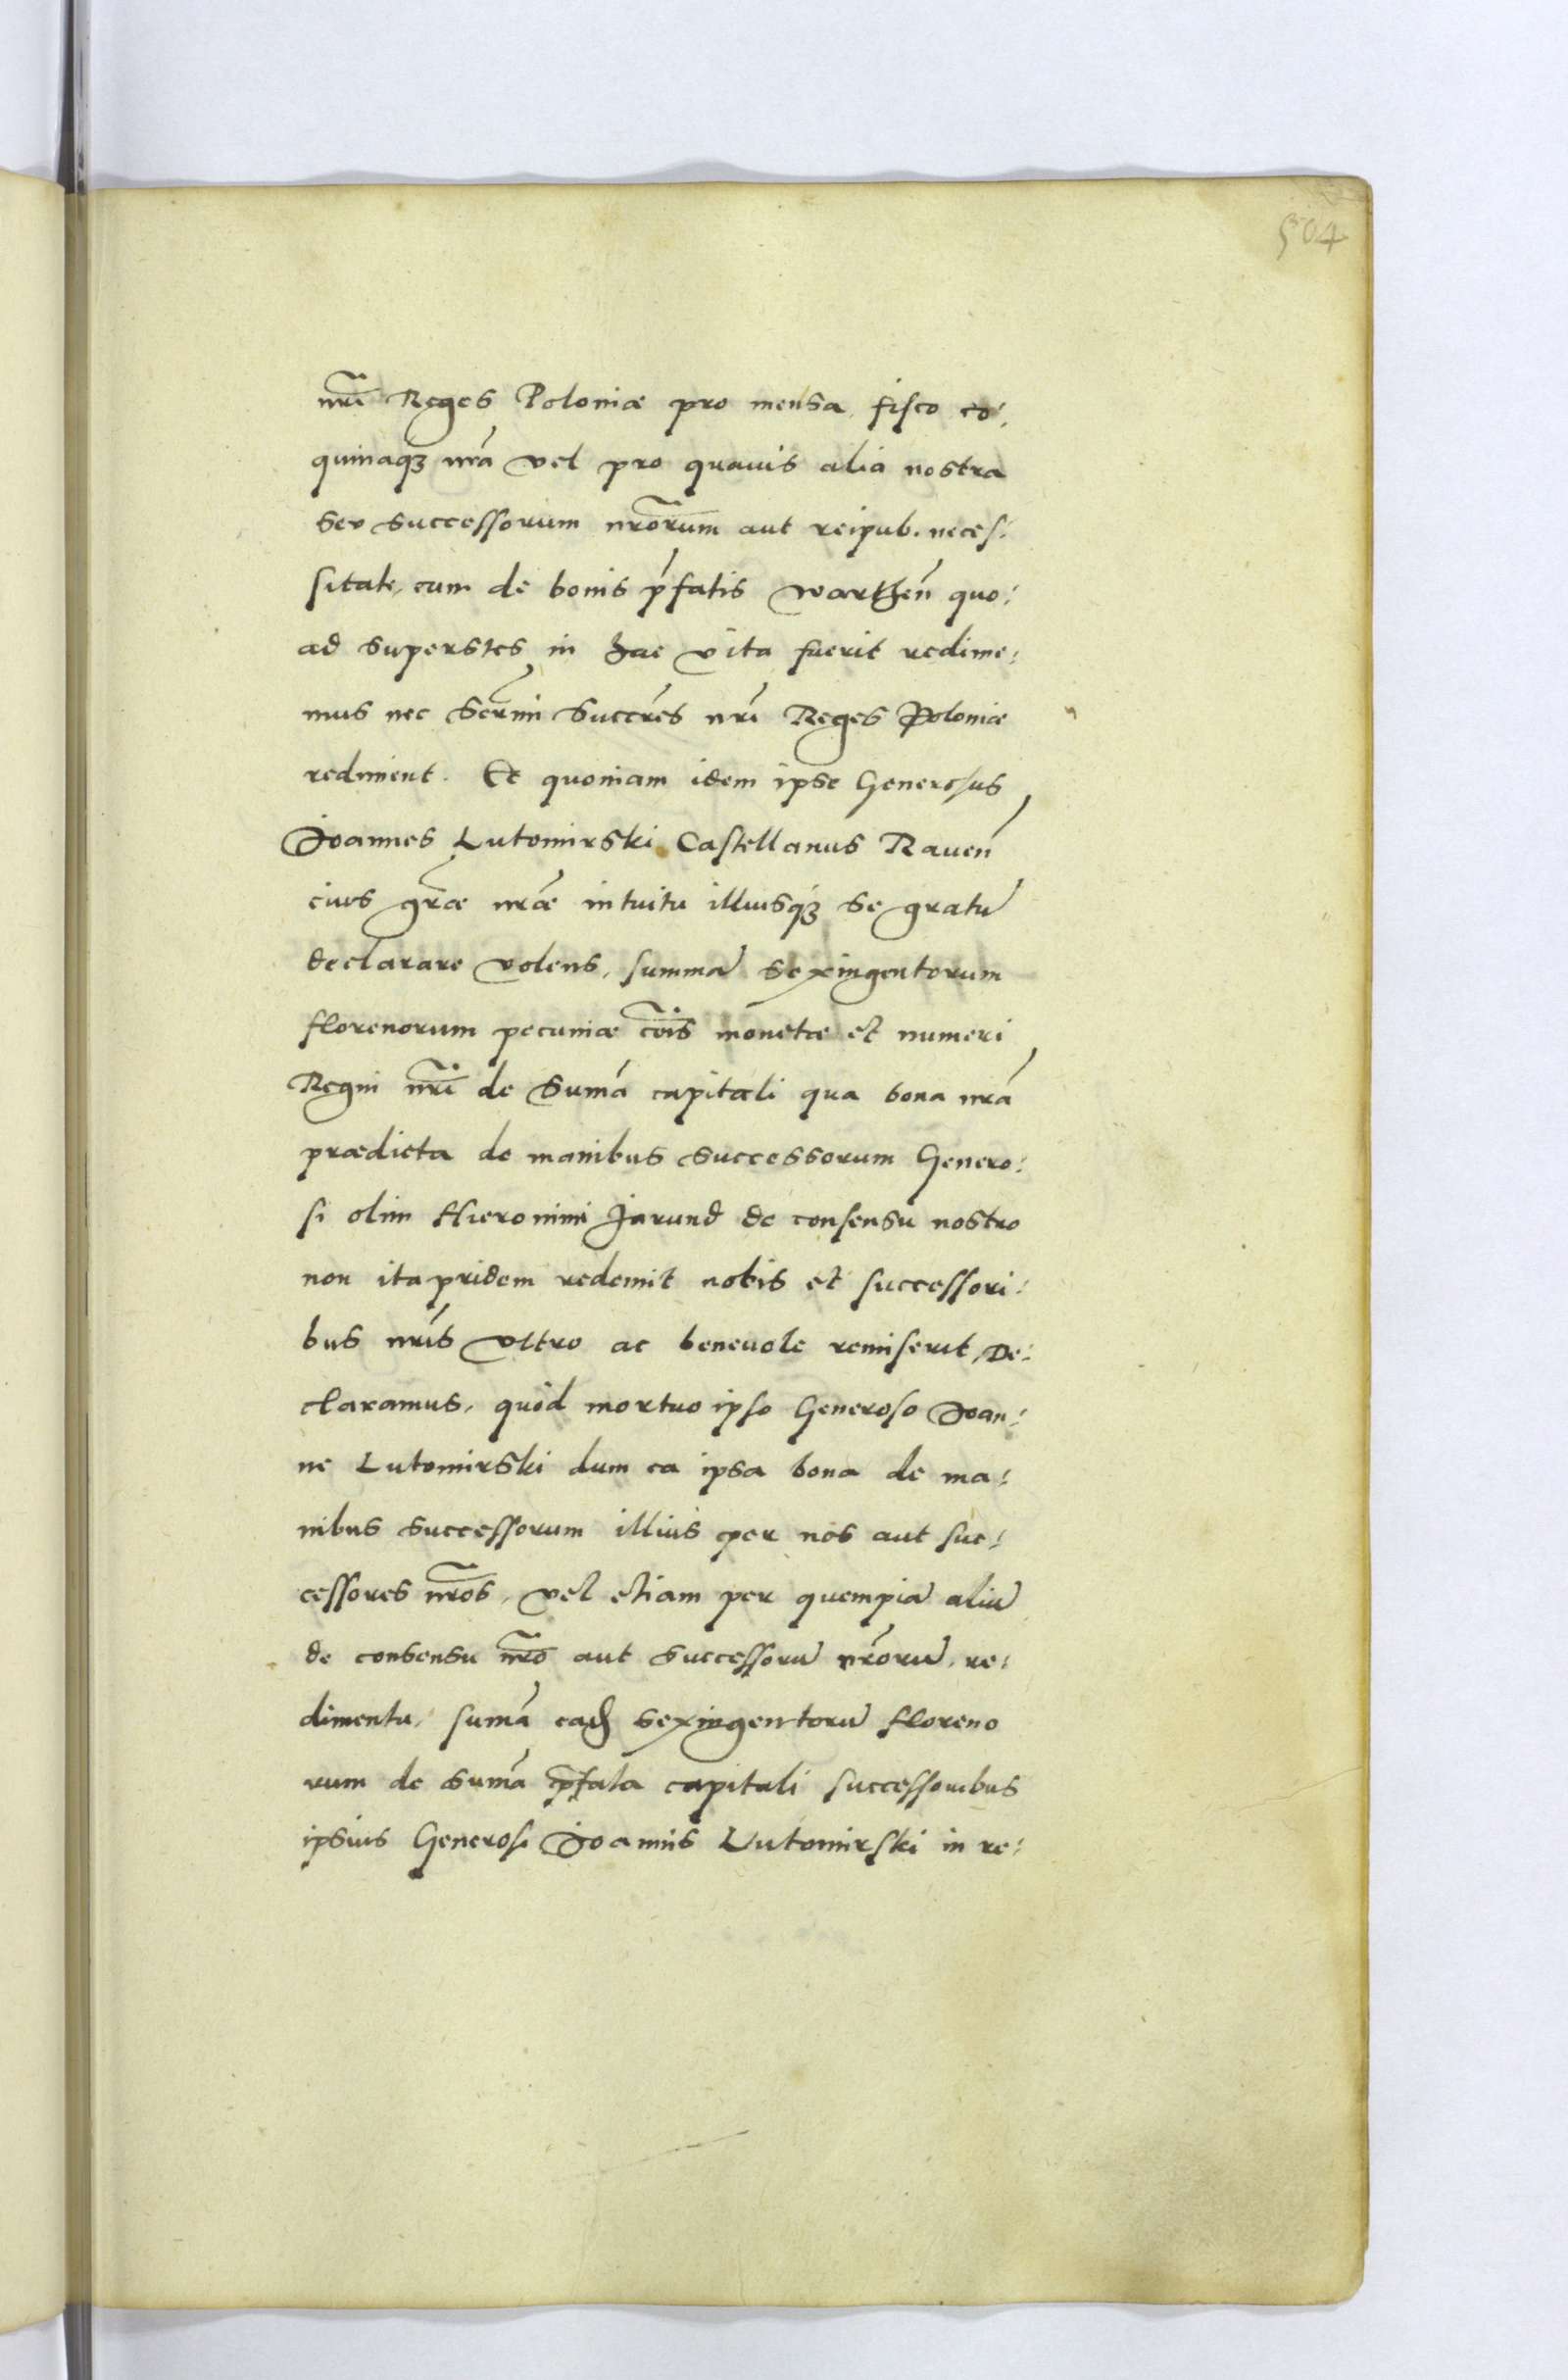 504
nr̃i Reges Poloniæ pro mensa, fisco co:
quinaqȝ nrã vel pro quauis alia nostra
seu successorum nrõrum aut reipub. neces:
sitate, eum de bonis p̃fatis Warthen̄ quo:
ad superstes in hac vita fuerit redime:
mus nec Serm̃i Succr̃es nr̃i Reges Poloniæ
rediment. Et quoniam idem ipse Generosus
Joannes Lutomirski Castellanus Rauen̄
eius gr̃æ nr̃æ intuitu illiusqȝ se gratū
declarare volens, summā sexingentorum
florenorum pecuniæ cõis monetæ et numeri
Regni nr̃i de Sum̃a capitali qua bona nrã
prædicta de manibus successorum Genero:
si olim Hieronimi Jarund de consensu nostro
non ita pridem redemit nobis et successori:
bus nr̃is vltro ac beneuole remiserit, De:
claramus, quòd mortuo ipso Generoso Joan:
ne Lutomirski dum ea ipsa bona de ma:
nibus successorum illius per nos aut suc:
cessores nr̃os, vel etiam per quempiā aliū
de consensu nrõ aut successorū nrõrū, re:
dimentu, sum̃a ead sexingentorū floreno
rum de sum̃a p̃fata capitali successoribus
ipsius Generosi Joannis Lutomirski in re: